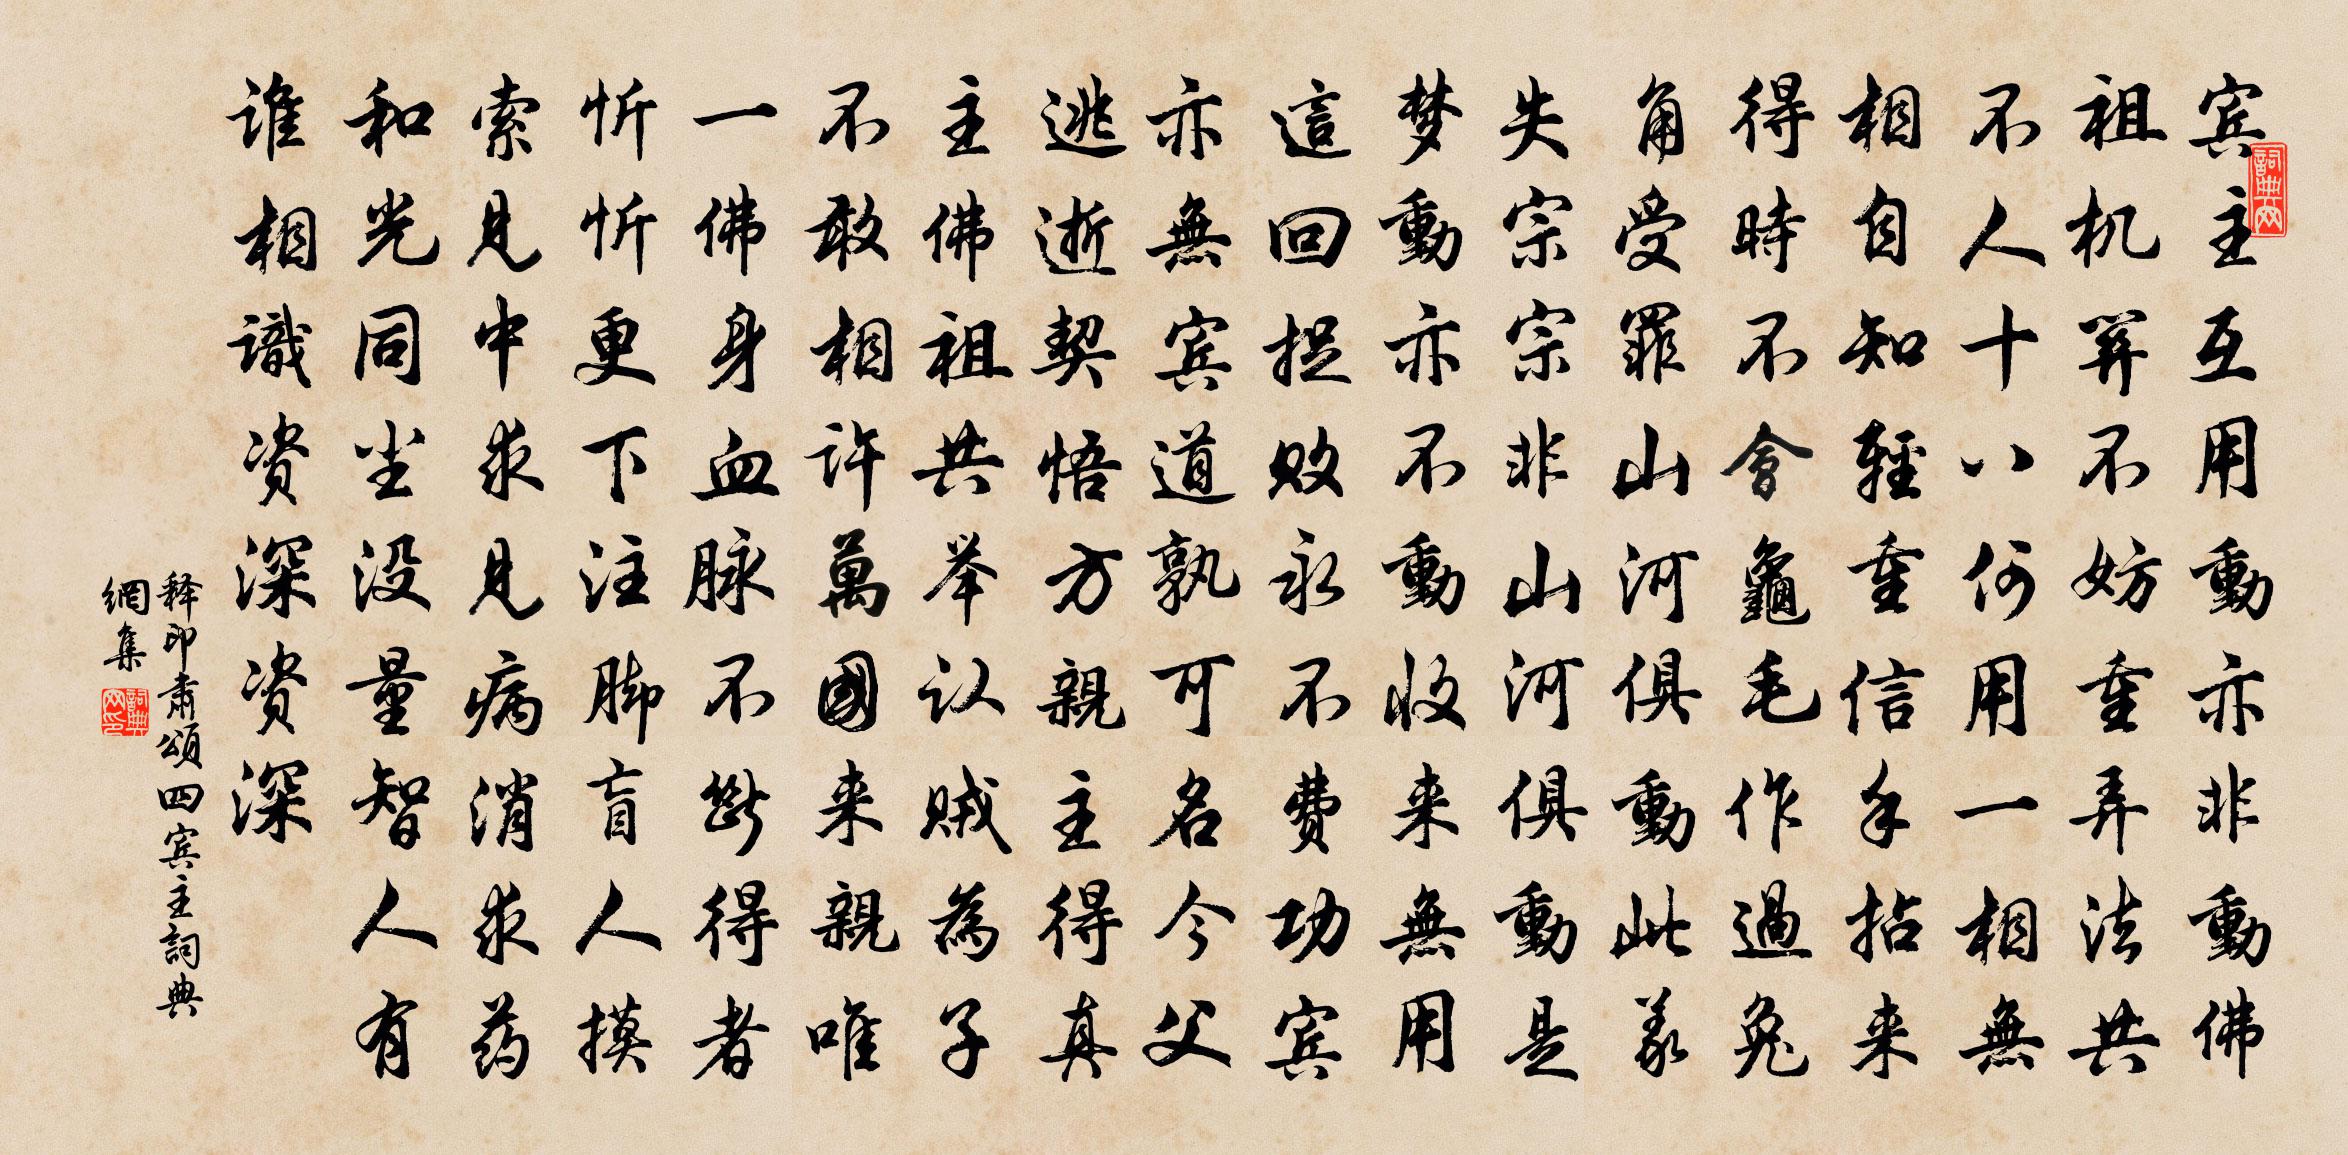 宾主互用動亦非動佛
祖机笄不妨重弄法共
不人十八何用一相無
相自知輕重信手拈来
得時不會龜毛作過兔
角受罪山河俱動此義
失宗宗非山河俱動是
梦動亦不動收来無用
這回捉敗永不費功宾
亦無宾道孰可名今父
逃逝契悟方親主得真
主佛祖共举认贼為子
不敢相许萬國来親唯
一佛身血脉不斷得者
忻忻更下注脚盲人摸
索見中求見病消求药
和光同尘没量智人有
谁相識资深资深
释印肃頌四宾主詞典
網集
詞典网
詞典网